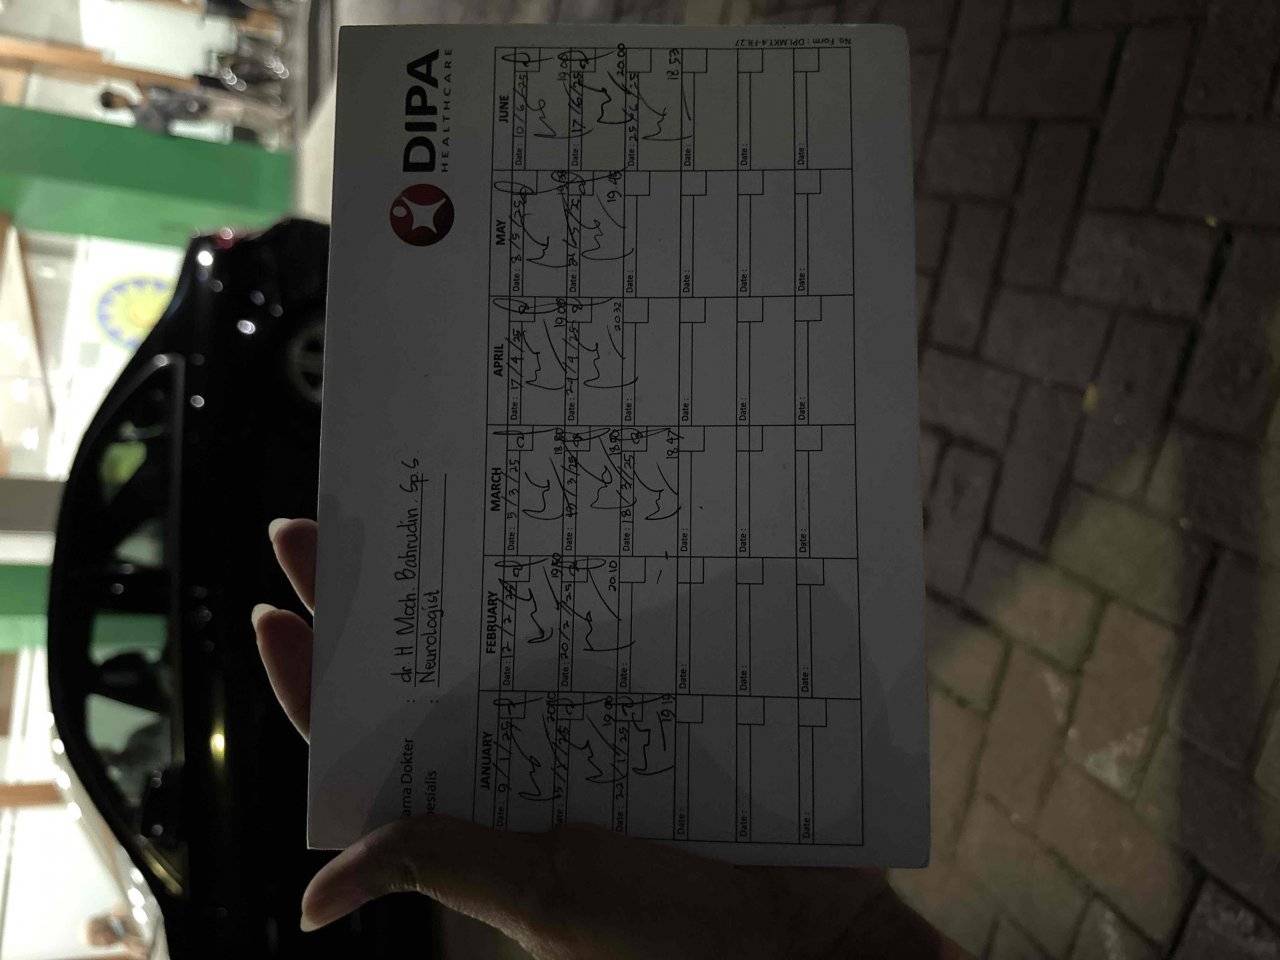 DIPA
HEALTHCARE
ama Dokter : dr H Moch. Bahrudin Sp S
pesialis : Neurologist
JANUARY FEBRUARY MARCH APRIL MAY JUNE
Date : 9/1/25 Date : 12/2/25 Date : 5/3/25 Date : 17/4/25 Date : 8/5/25 Date : 10/6/25
19.00 19.00
Date : 20/2/25 Date : 24/4/25 Date : 17/6/25
19.00 20.10 20.32 19.45 20.00
22/1/25 Date : Date : 18/3/25 Date : Date : Date : 25/6/25
19.19 18.47 18.53
Date : Date : Date : Date : Date : Date :
Date : Date : Date : Date : Date : Date :
Date : Date : Date : Date : Date : Date :
No. Form : DPI.MKT.4-FR.27